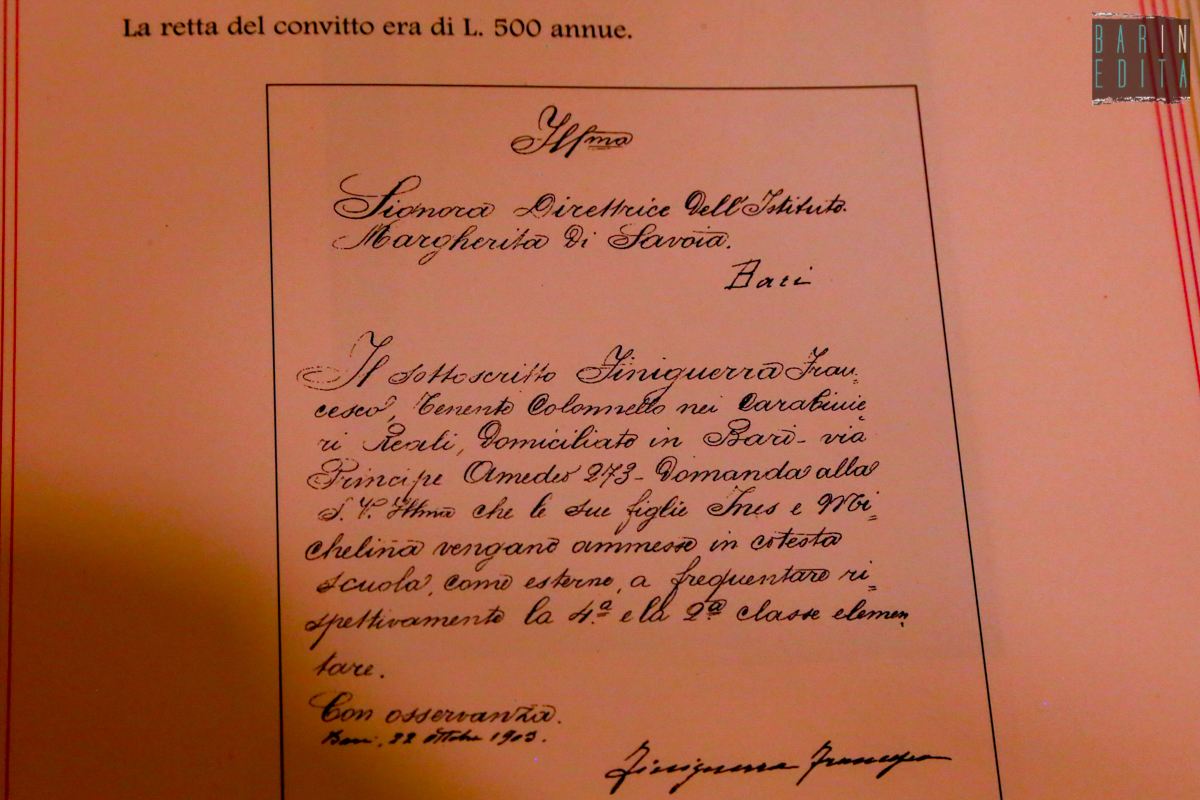 La retta del convitto era di L. 500 annue.
BARIN
EDITA
Ill.ma
Signora Direttrice Dell'Istituto
Margherita di Savoia.
Bari
Il sottoscritto Finiguerra Fran-
cesco, Tenente Colonnello nei Carabinie-
ri Reali, domiciliato in Bari - via
Principe Amedeo 273 - domanda alla
S. V. Ill.ma che le sue figlie Ines e Mi-
chelina vengano ammesse in cotesta
scuola, come esterne, a frequentare ri-
spettivamente la 4.ª e la 2.ª classe elemen-
tare.
Con osservanza.
Bari, 22 ottobre 1903.
Finiguerra Francesco